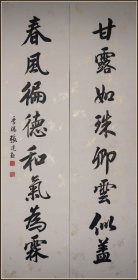 甘露如珠卿雲似蓋
春風徧德和氣為霖